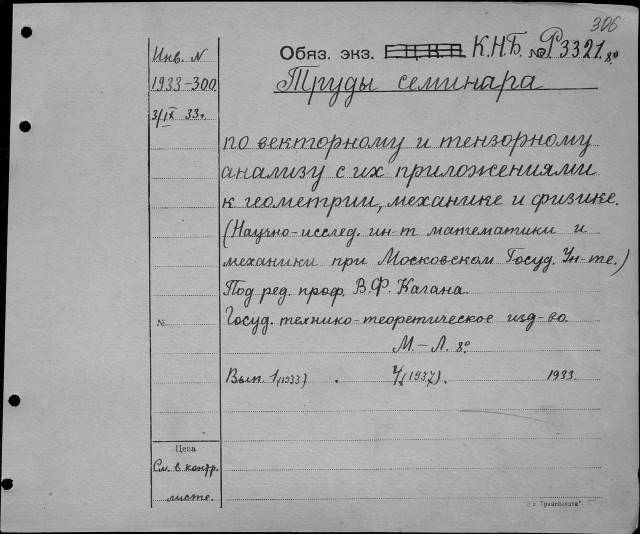 306
Инв. N
1933-300
3/IX 33г.
Обяз. экз. Г.Ц.К.П. К.Н.Б. № Р3321 8°
Труды семинара
по векторному и тензорному
анализу с их приложениями
к геометрии, механике и физике.
(Научно-исслед. ин-т математики и
механики при Московском Госуд. Ун-те.)
Под ред. проф. В.Ф. Кагана.
№
Госуд. технико-теоретическое изд-во.
М.-Л. 8°
Вып. 1 (1933) . 4 (1937). 1933.
Цена
См. в контр.
листе.